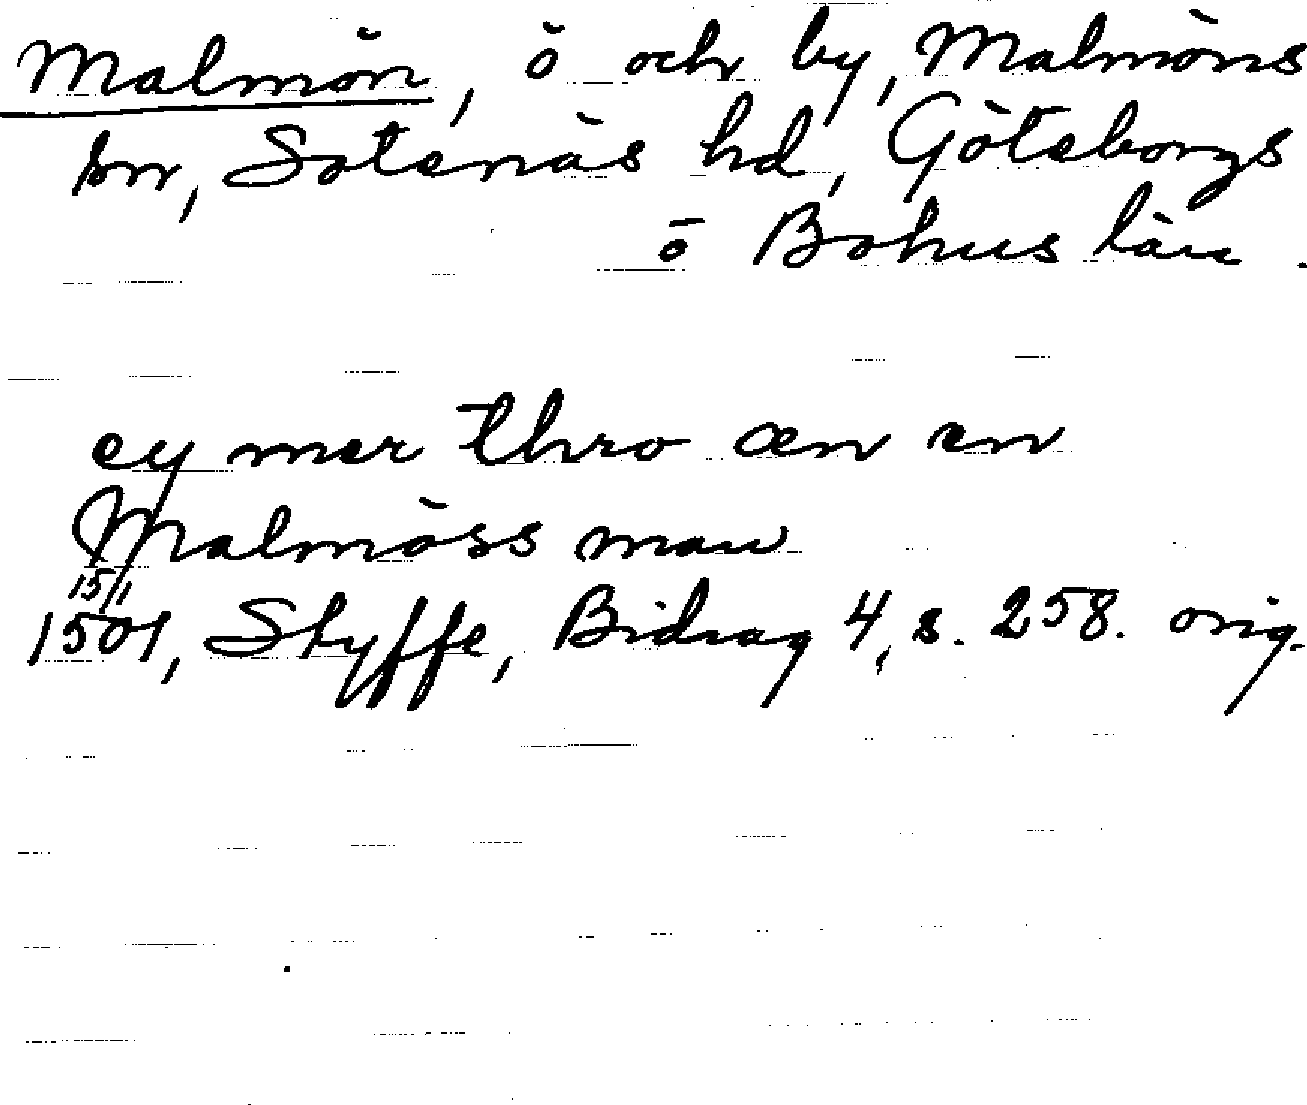 Malmön, ö och by, Malmöns
sn, Sotenäs hd, Göteborgs
o Bohus län.
ey mer thro æn en
Malmöss man
15/1
1501, Styffe, Bidrag 4, s. 258. orig.